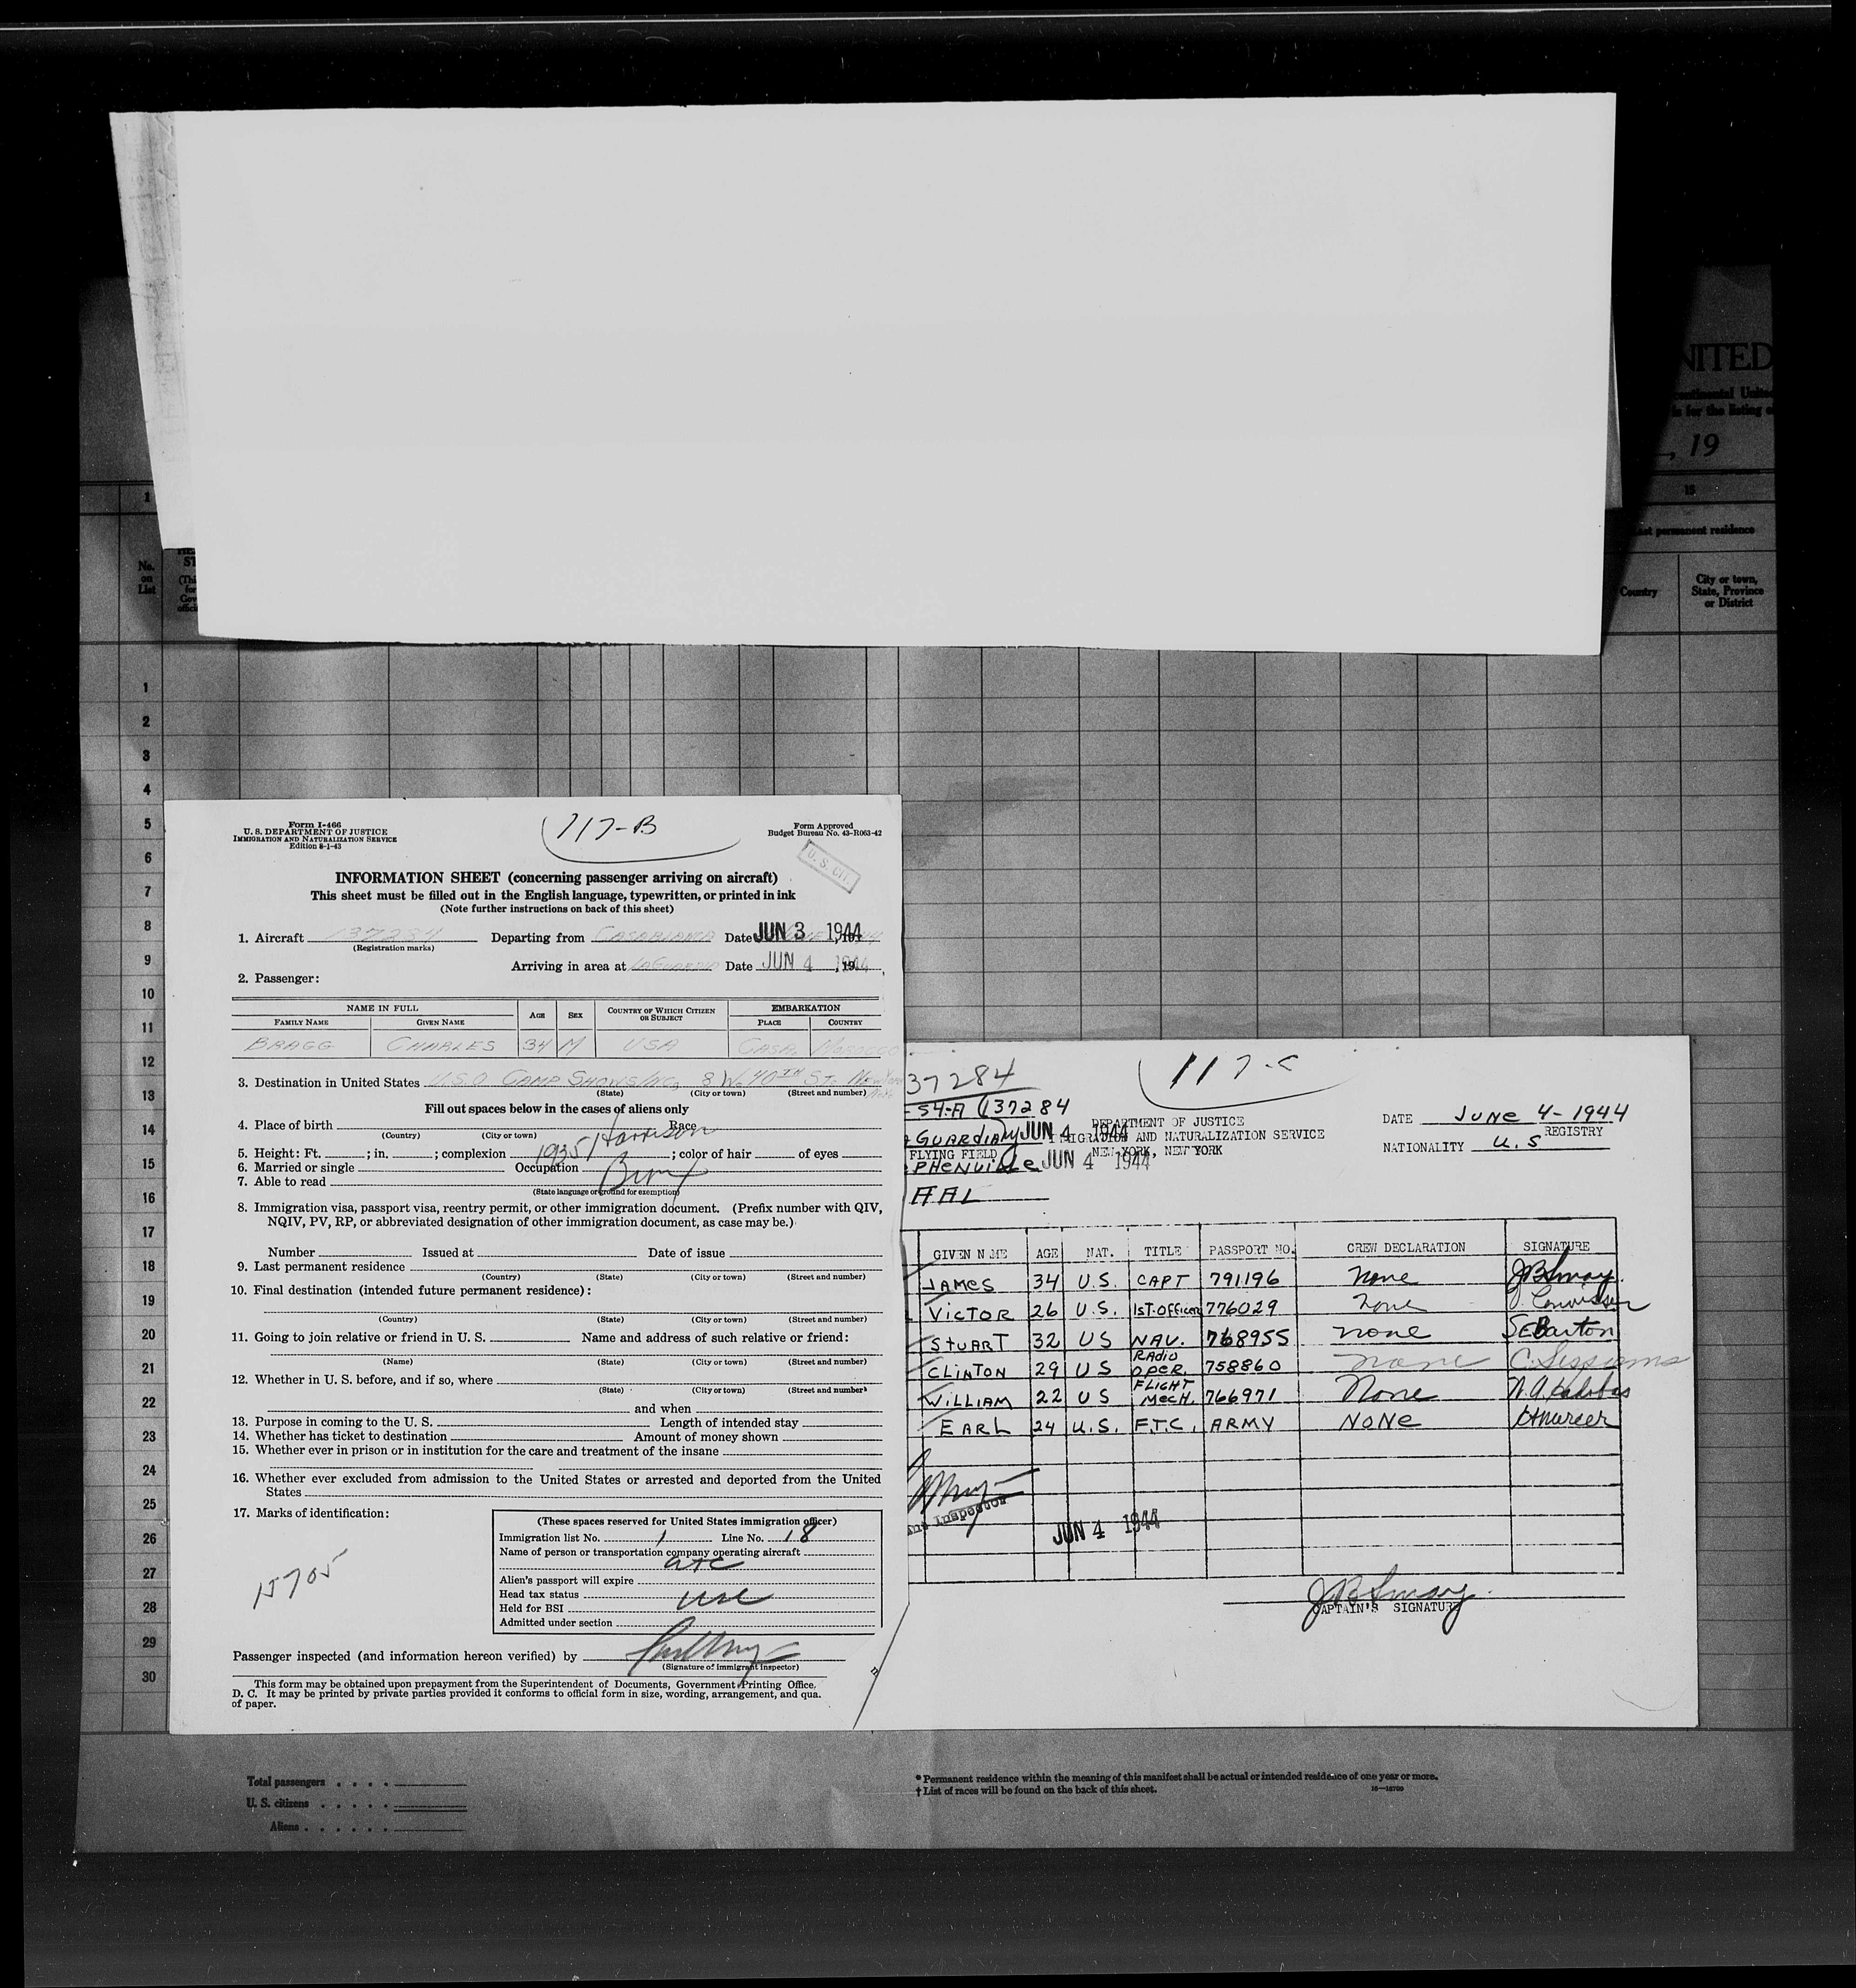 UNITED
Continental Unite
is for the listing o
, 19
1
15
Last permanent residence
No.
on
List
ST
(Thi
for
Gov
offici
Country
City or town,
State, Province
or District
1
2
3
4
5
6
7
8
9
10
11
12
13
14
15
16
17
18
19
20
21
22
23
24
25
26
27
28
29
30
Form I-466
U. S. DEPARTMENT OF JUSTICE
IMMIGRATION AND NATURALIZATION SERVICE
Edition 8-1-43
117-B
Form Approved
Budget Bureau No. 43-R063-42
U. S. CIT.
INFORMATION SHEET (concerning passenger arriving on aircraft)
This sheet must be filled out in the English language, typewritten, or printed in ink
(Note further instructions on back of this sheet)
1. Aircraft 137284 Departing from CASABLANCA Date JUN 3 1944
(Registration marks)
Arriving in area at LAGUARDIA Date JUN 4 1944
2. Passenger:
NAME IN FULL AGE SEX COUNTRY OF WHICH CITIZEN OR SUBJECT EMBARKATION
FAMILY NAME GIVEN NAME PLACE COUNTRY
BRAGG CHARLES 34 M USA CASA. MOROCCO
3. Destination in United States U.S.O CAMP SHOWS INC, 8 W. 40TH ST. NEW YORK
(State) (City or town) (Street and number)
Fill out spaces below in the cases of aliens only
4. Place of birth Race
(Country) (City or town)
1935 Harrison
5. Height: Ft. ; in. ; complexion ; color of hair of eyes
6. Married or single Occupation
Bronx
7. Able to read
(State language or ground for exemption)
8. Immigration visa, passport visa, reentry permit, or other immigration document. (Prefix number with QIV,
NQIV, PV, RP, or abbreviated designation of other immigration document, as case may be.)
Number Issued at Date of issue
9. Last permanent residence
(Country) (State) (City or town) (Street and number)
10. Final destination (intended future permanent residence):
(Country) (State) (City or town) (Street and number)
11. Going to join relative or friend in U. S. Name and address of such relative or friend:
(Name) (State) (City or town) (Street and number)
12. Whether in U. S. before, and if so, where
(State) (City or town) (Street and number)
and when
13. Purpose in coming to the U. S. Length of intended stay
14. Whether has ticket to destination Amount of money shown
15. Whether ever in prison or in institution for the care and treatment of the insane
16. Whether ever excluded from admission to the United States or arrested and deported from the United
States
17. Marks of identification:
15705
(These spaces reserved for United States immigration officer)
Immigration list No. 1 Line No. 18
Name of person or transportation company operating aircraft
ATC
Alien's passport will expire
Head tax status USC
Held for BSI
Admitted under section
Passenger inspected (and information hereon verified) by
(Signature of immigrant inspector)
This form may be obtained upon prepayment from the Superintendent of Documents, Government Printing Office,
D. C. It may be printed by private parties provided it conforms to official form in size, wording, arrangement, and qua.
of paper.
37284
117-C
-54-A (137284
GUARDIA JUN 4 1944
FLYING FIELD
PHENVILLE JUN 4 1944
AAL
DEPARTMENT OF JUSTICE
IMMIGRATION AND NATURALIZATION SERVICE
NEW YORK, NEW YORK
DATE JUNE 4-1944
REGISTRY
NATIONALITY U.S
GIVEN NAME AGE NAT. TITLE PASSPORT NO. CREW DECLARATION SIGNATURE
JAMES 34 U.S. CAPT 791196 None
VICTOR 26 U.S. 1ST. OFFICER 776029 None
STUART 32 US NAV. 768955 none SEBarton
CLINTON 29 US RADIO OPER. 758860 none C. Sessioms
WILLIAM 22 US FLIGHT MECH. 766971 None
EARL 24 U.S. F.T.C. ARMY NONE
Inspector
JUN 4 1944
CAPTAIN'S SIGNATURE
Total passengers
U. S. citizens
Aliens
* Permanent residence within the meaning of this manifest shall be actual or intended residence of one year or more.
† List of races will be found on the back of this sheet.